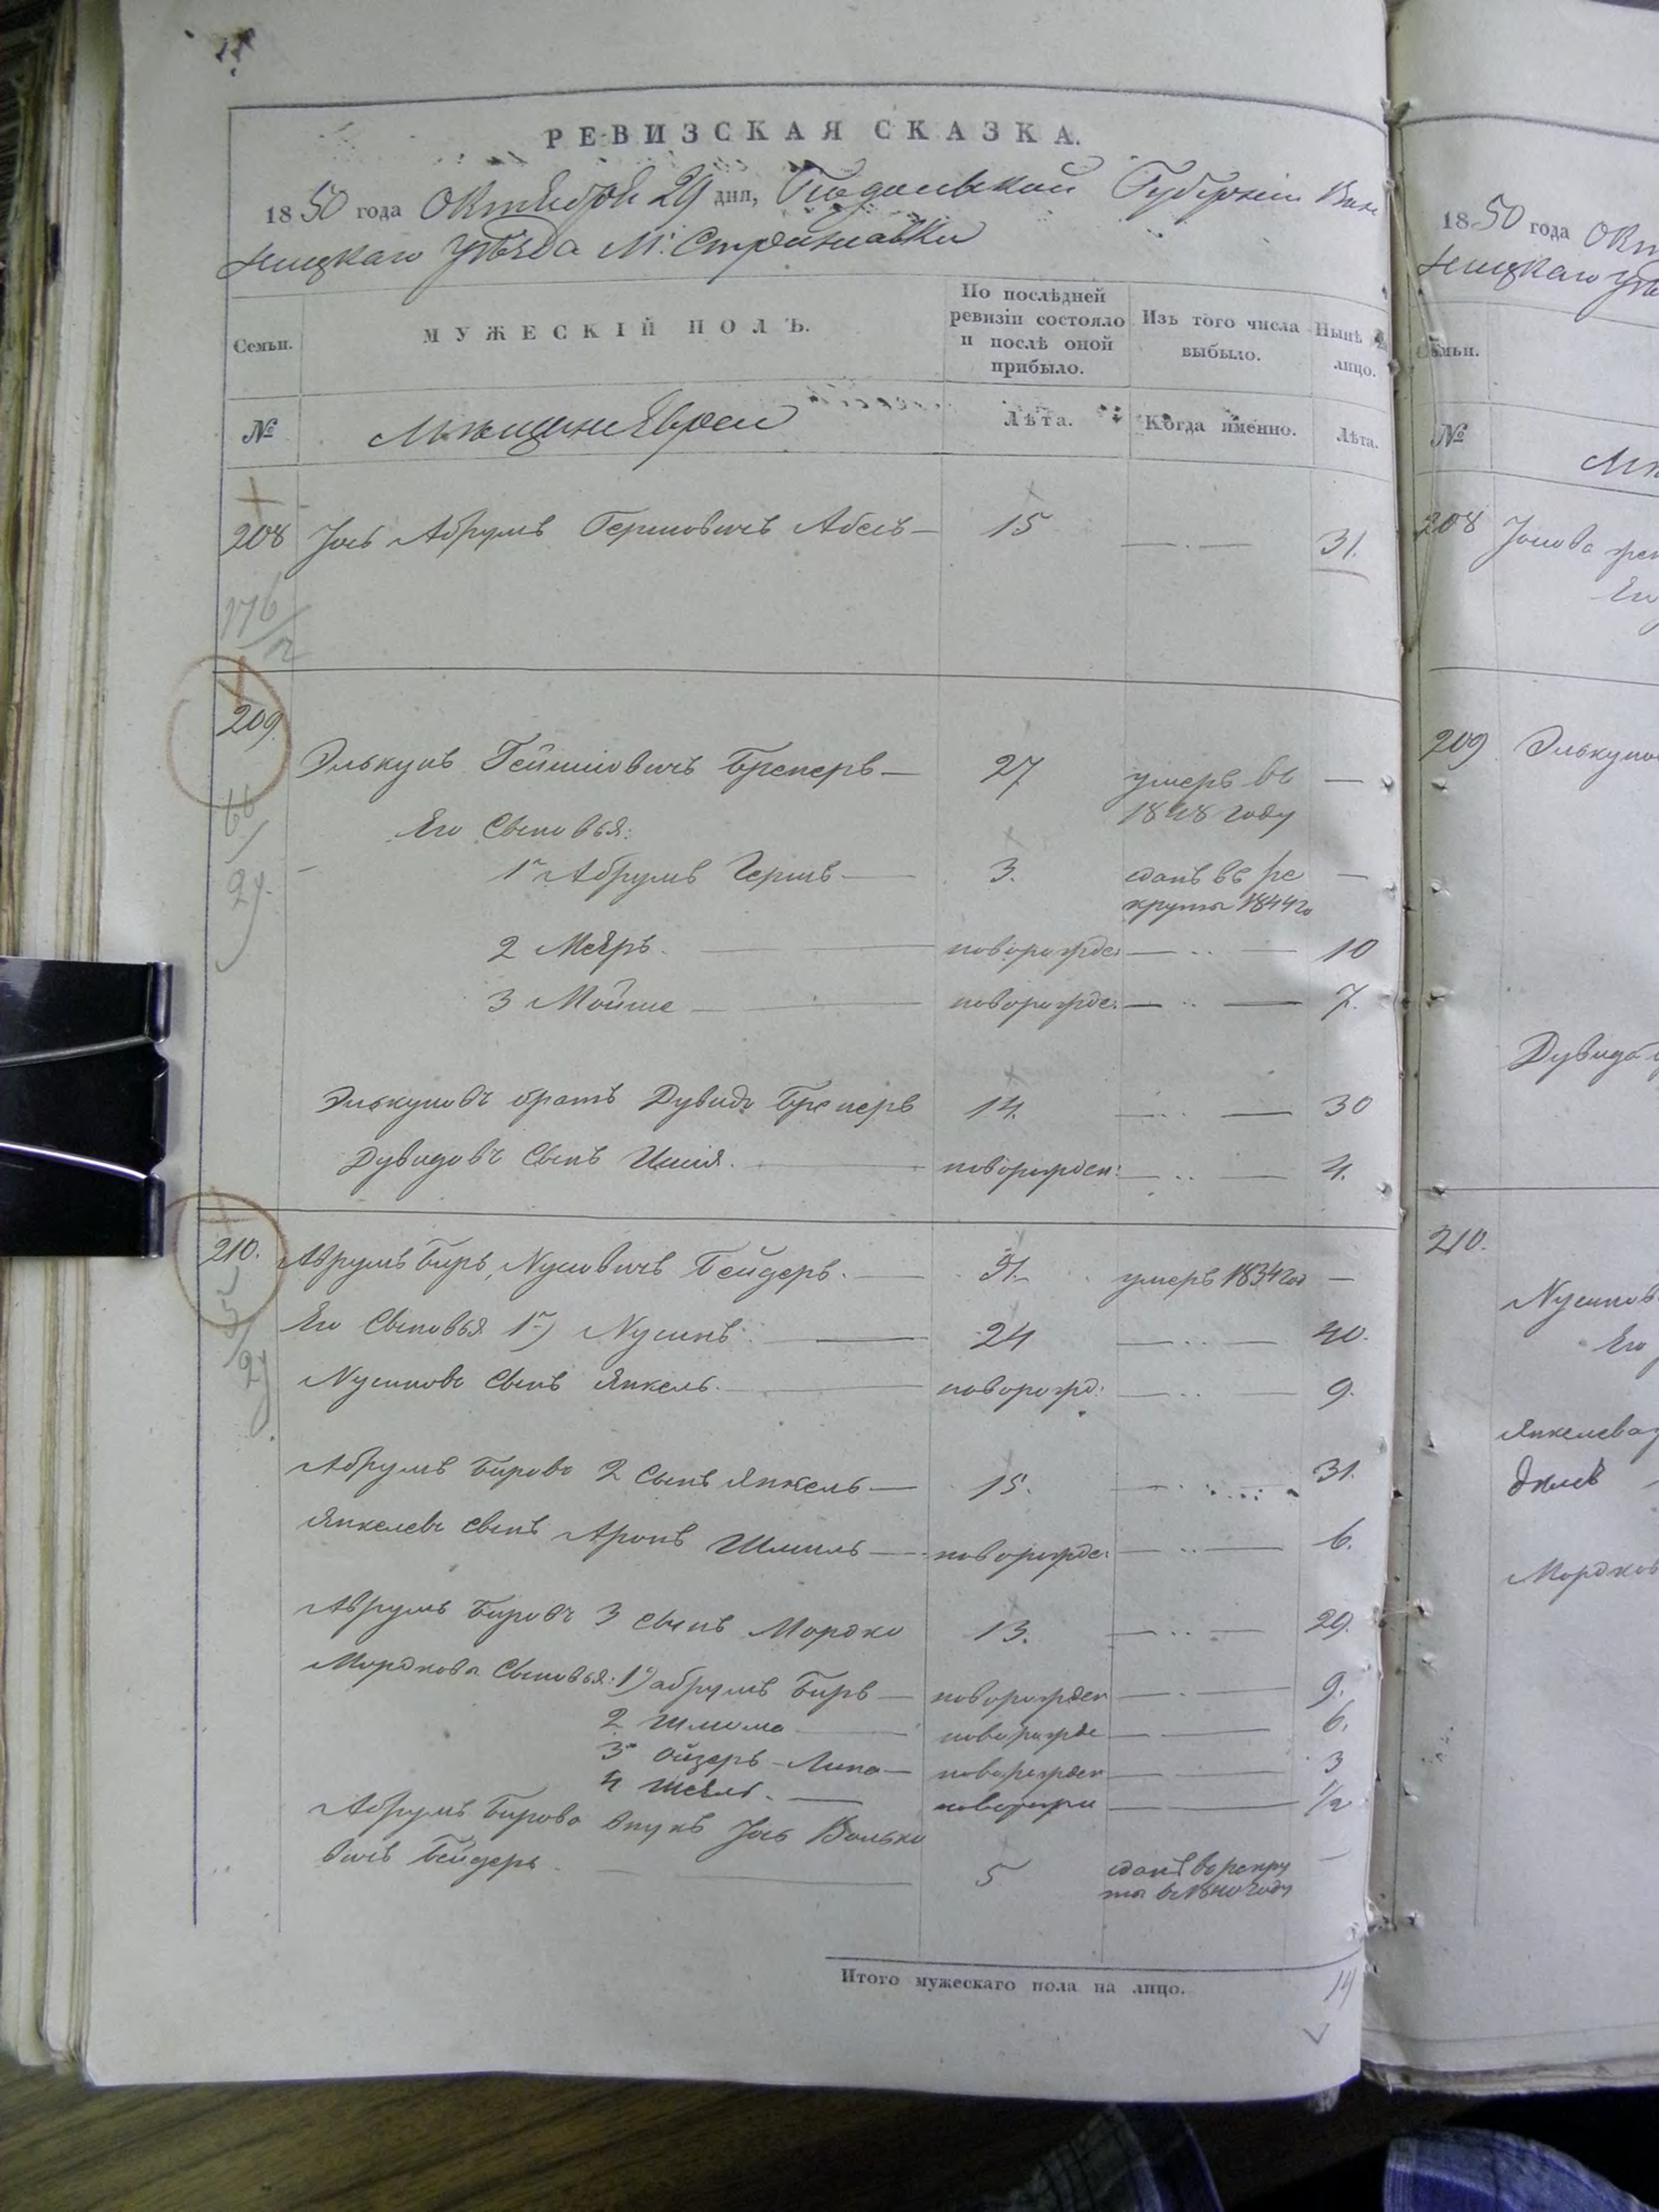 РЕВИЗСКАЯ СКАЗКА.
1850 года Октября 29 дня, Подольской Губернiи Вин
ницкаго Уѣзда М. Стрижавки
Семьи.
МУЖЕСКIЙ ПОЛЪ.
По послѣдней ревизiи состояло и послѣ оной прибыло.
Изъ того числа выбыло.
Нынѣ на лицо.
№
Мѣщане Евреи
Лѣта.
Когда именно.
Лѣта.
208 Іось Абрумъ Гершовичъ 15 31.
209 Элькунъ Брекеръ 27 умеръ въ 1848 году
Его Сыновья:
1й Абрумъ Гершъ 3. сданъ въ рекруты 1844 го
2 Меяръ. новорожде: 10
3 Мойше новорожде: 7.
Элькуновъ братъ Дувидъ Брекеръ 14. 30
Дувидовъ Сынъ новорожден: 4.
210. Аврумъ Беръ, Нусиовичъ Бейдеръ. умеръ 1834 год
Его Сыновья 1й) Нусинъ 24 40.
Нусиновъ Сынъ Янкель. новорожд: 9.
Абрумъ Беровъ 2 Сынъ Янкель 15. 31.
Янкелевъ Сынъ Аронъ Шмиль новорожде: 6.
Аврумъ Беровъ 3 Сынъ Мордко 13. 29.
Мордковы Сыновья: 1й) абрумъ Беръ новорожден 9.
2 Шлиома новорожде 6.
3й Ойзеръ-Липа новорожден 3
4 новорож 1/2
Абрумъ Берова внукъ Іось Волько
вичъ Бейдеръ 5 сданъ въ рекру
ты въ 1840 году
Итого мужескаго пола на лицо. 14
1850 года Окт
ницкаго Уѣ
Семьи.
№
208
209
Дувид
210.
Нусинов
Его
Янкелева
Мордков